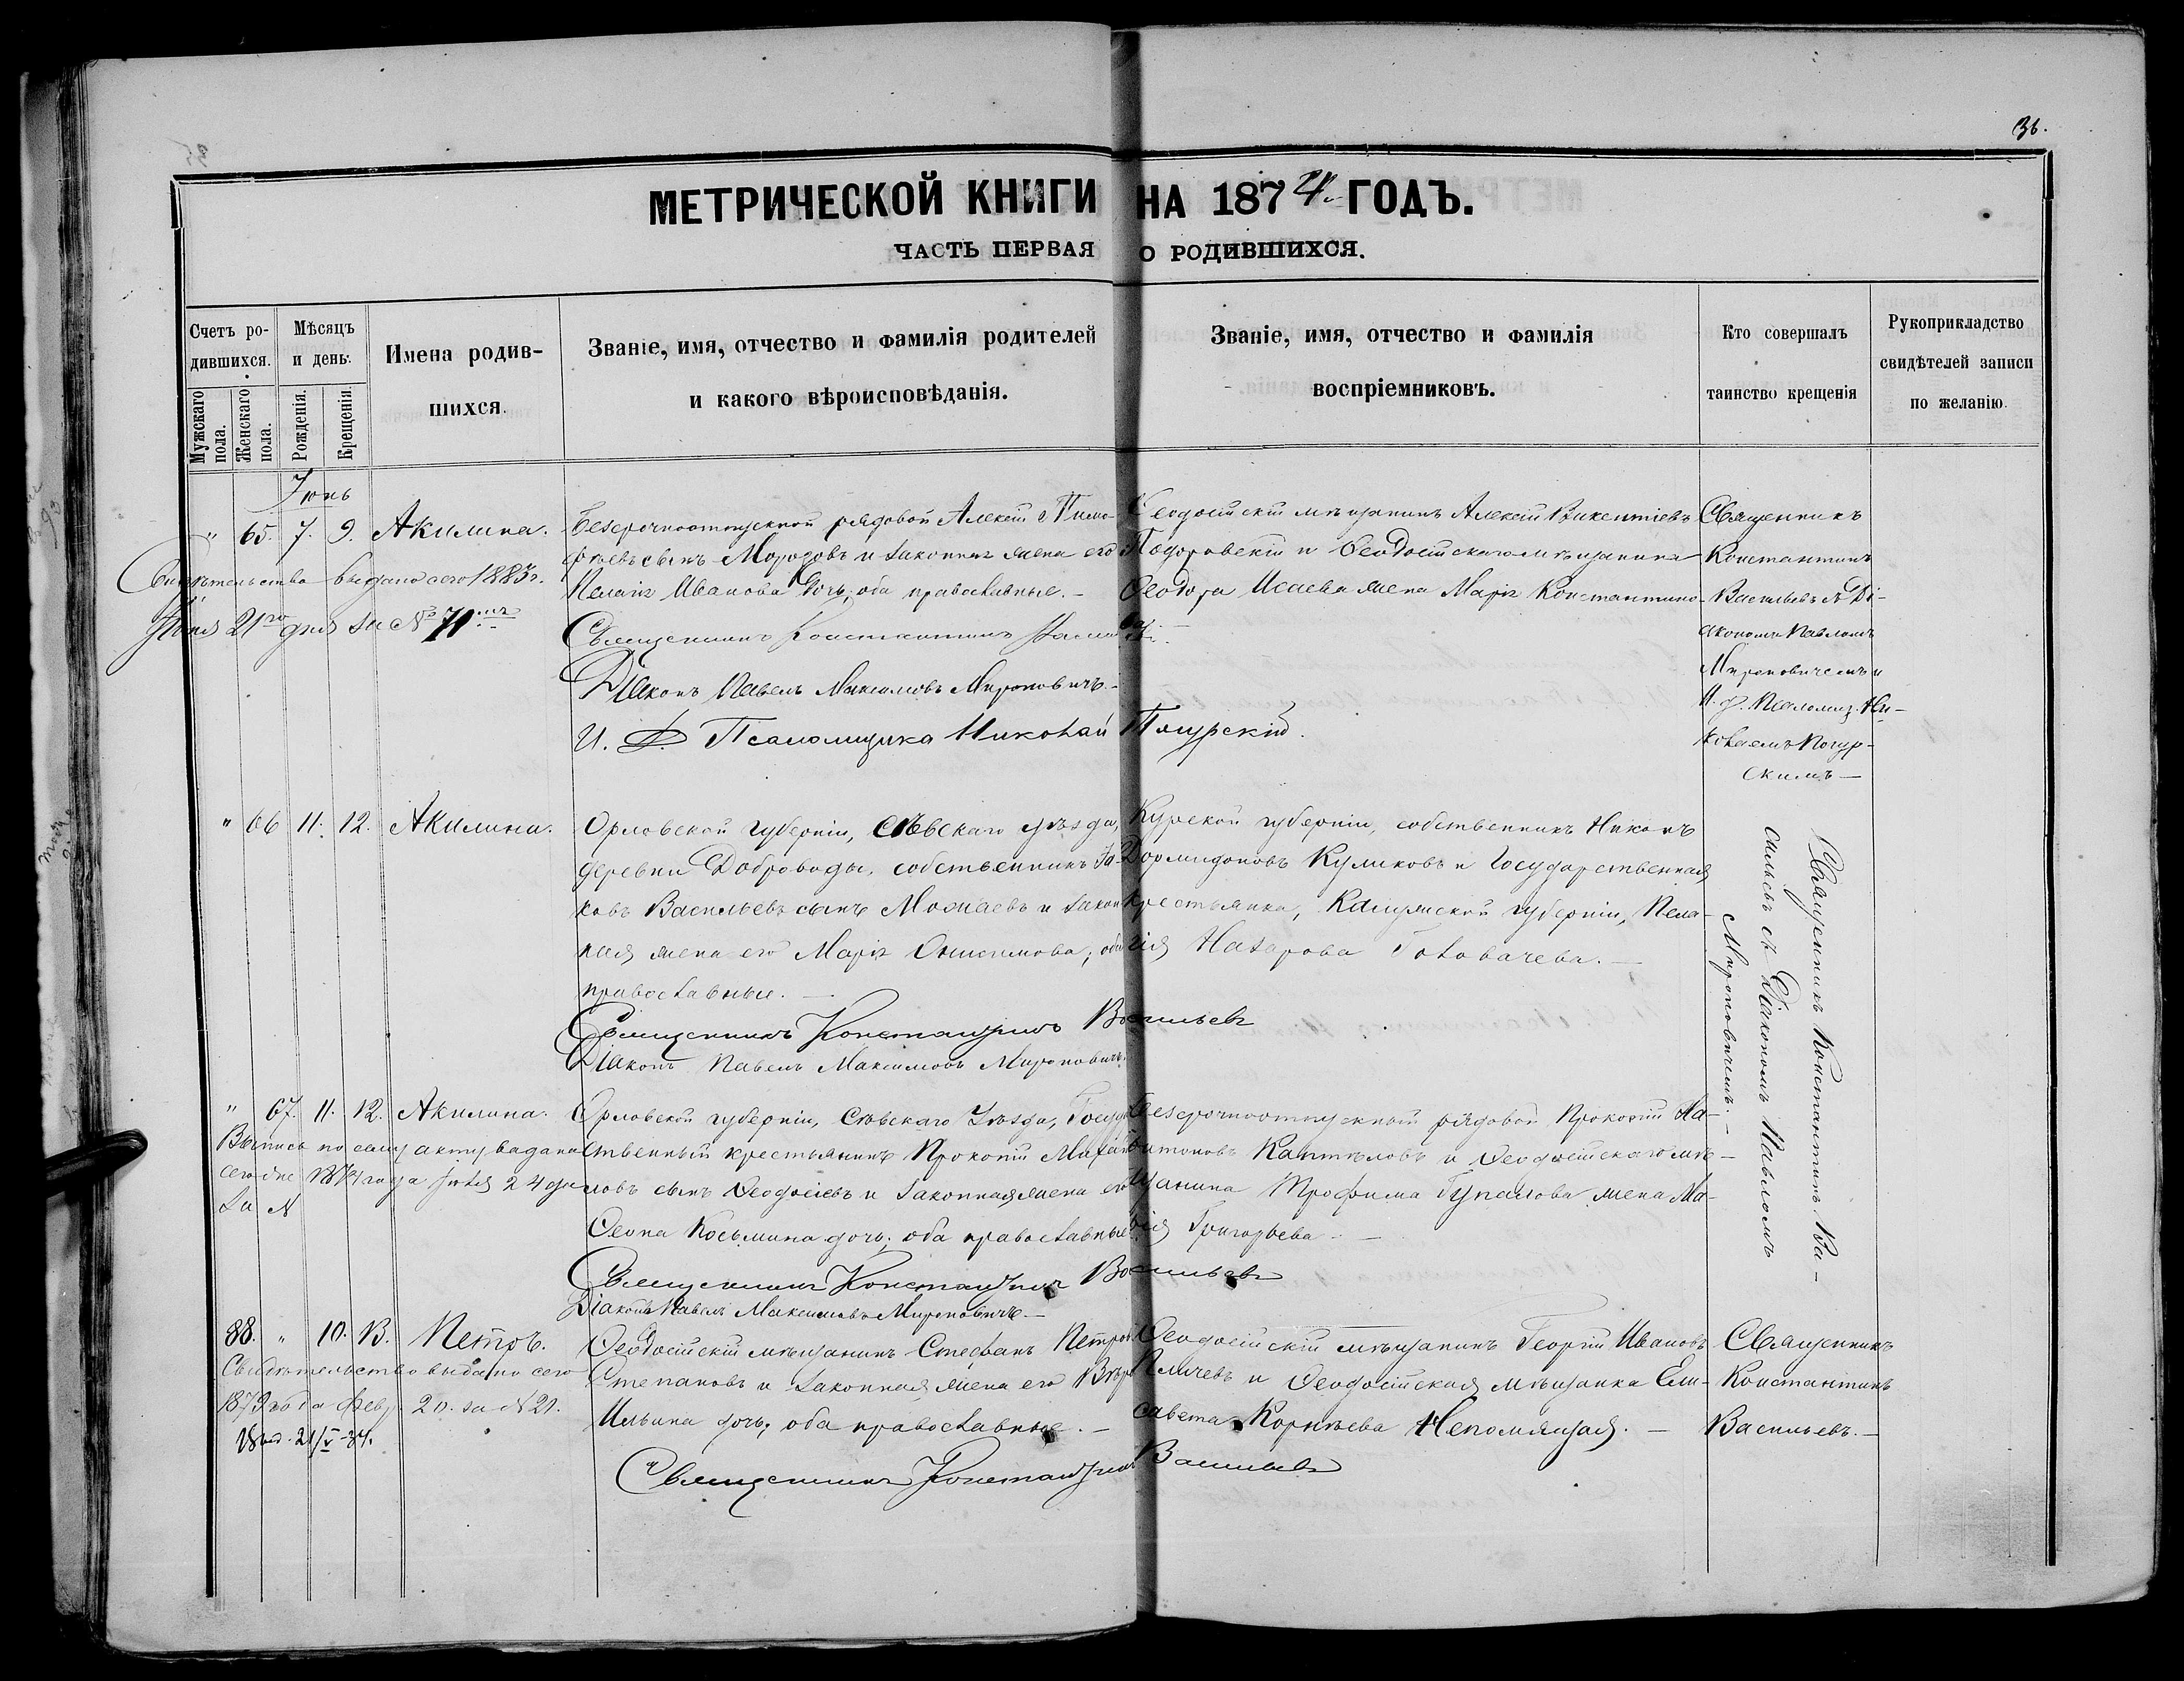 36.
МЕТРИЧЕСКОЙ КНИГИ НА 1874 ГОДЪ.
ЧАСТЬ ПЕРВАЯ О РОДИВШИХСЯ.
Счетъ ро-
дившихся.
Мужскаго пола.
Женскаго пола.
Мѣсяцъ
и день.
Рожденія.
Крещенія.
Имена родив-
шихся.
Званіе, имя, отчество и фамилія родителей
и какого вѣроисповѣданія.
Званіе, имя, отчество и фамилія
воспріемниковъ.
Кто совершалъ
таинство крещенія
Рукоприкладство
свидѣтелей записи
по желанію.
Іюнь
" 65. 7. 9. Акилина.
Свидѣтельство выдано сего 1883 г.
Іюня 21го дня за № 71
Безсрочноотпускной рядовой Алексѣй Тимо-
ѳеевъ сынъ Морозовъ и законная жена его
Пелагія Иванова дочь, оба православные. –
Священникъ Константинъ
Діаконъ Павелъ Максимовъ Мироновичъ. –
И. Д. Псаломщика Николай
Ѳеодосійскій мѣщанинъ Алексѣй Викентіевъ
Подоровскій и Ѳеодосійскаго мѣщанина
Ѳеодора Исаева жена Марія Константино-
ва. –
Священникъ
Константинъ
Васильевъ съ Ді-
акономъ Павломъ
Мироновичемъ и
И. д. Псаломщ. Ни-
колаемъ
скимъ –
" 66 11. 12. Акилина.
Орловской губерніи, Сѣвскаго уѣзда,
деревни Доброводы, собственникъ Іа-
ковъ Васильевъ сынъ Можаевъ и закон-
ная жена его Марія Онисимова, оба
православные. –
Священникъ Константинъ Васильевъ
Діаконъ Павелъ Максимовъ Мироновичъ.
Курской губерніи, собственникъ Никонъ
Дормидоновъ Куликовъ и Государственная
крестьянка, Калужской губерніи, Пела-
гія Назарова Головачева. –
Священникъ Константинъ Ва-
сильевъ съ Діакономъ Павломъ
Мироновичемъ. –
" 67. 11. 12. Акилина.
Выпись по сему акту выдана
1874 года Іюля 24 дня
за №
Орловской губерніи, Сѣвскаго Уѣзда, Государ-
ственный крестьянинъ Прокопій Михай-
ловъ сынъ Ѳеодосіевъ и законная жена его
Ѳеона Косьмина дочь, оба православные.
Священникъ Константинъ Васильевъ
Діаконъ Павелъ Максимовъ Мироновичъ. –
Безсрочноотпускный рядовой Прокопій Ха-
ритоновъ и Ѳеодосійскаго мѣ-
щанина Трофима жена Ма-
рія Григорьева. –
88. " 10. 13. Петръ.
Свидѣтельство выдано сего
1879 года Фев. 20. за № 21.
Ѳеодосійскій мѣщанинъ Стефанъ Петровъ
Степановъ и законная жена его Вѣра
Ильина дочь, оба православные. –
Священникъ Константинъ Васильевъ
Ѳеодосійскій мѣщанинъ Георгій Ивановъ
и Ѳеодосійская мѣщанка Ели-
савета Корнѣева Непомнящая. –
Священникъ
Константинъ
Васильевъ. –